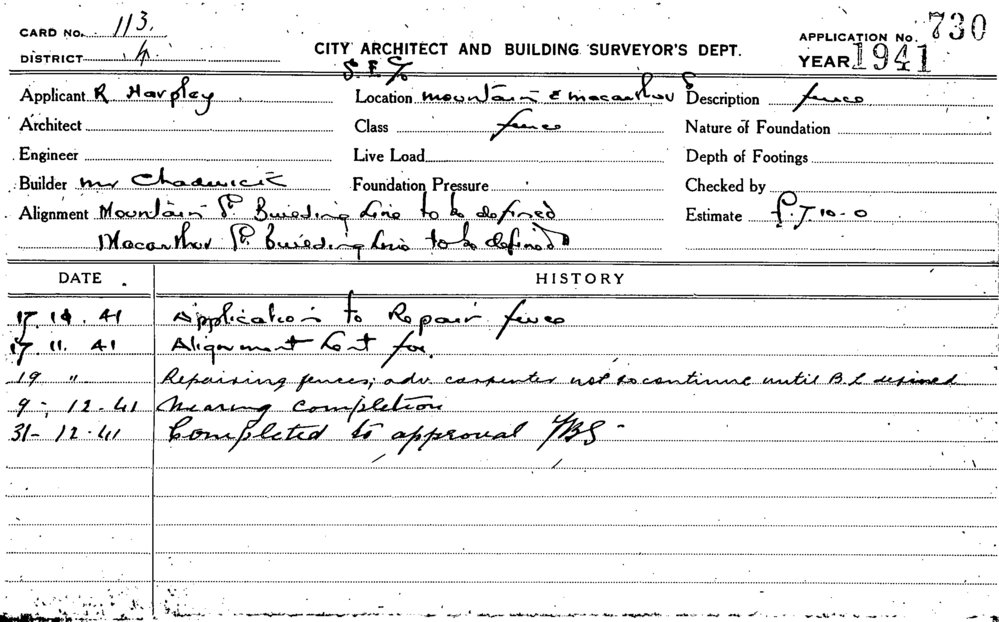 CARD No. 113.
APPLICATION No. 730
DISTRICT 4
CITY ARCHITECT AND BUILDING SURVEYOR'S DEPT.
YEAR 1941
S.E. C/o
Applicant R Harpley
Location Mountain & Macarthur S
Description fence
Architect
Class fence
Nature of Foundation
Engineer
Live Load
Depth of Footings
Builder Mr Chadwick
Foundation Pressure
Checked by
Alignment Mountain St. Building Line to be defined
Estimate £7-10-0
Macarthur St. Building Line to be defined
DATE HISTORY
41 Application to Repair fence
17.11.41 Alignment Sent for.
19 " Repairing fences; adv. carpenter not to continue until B.L defined
9-12-41 Nearing completion
31-12-41 Completed to approval